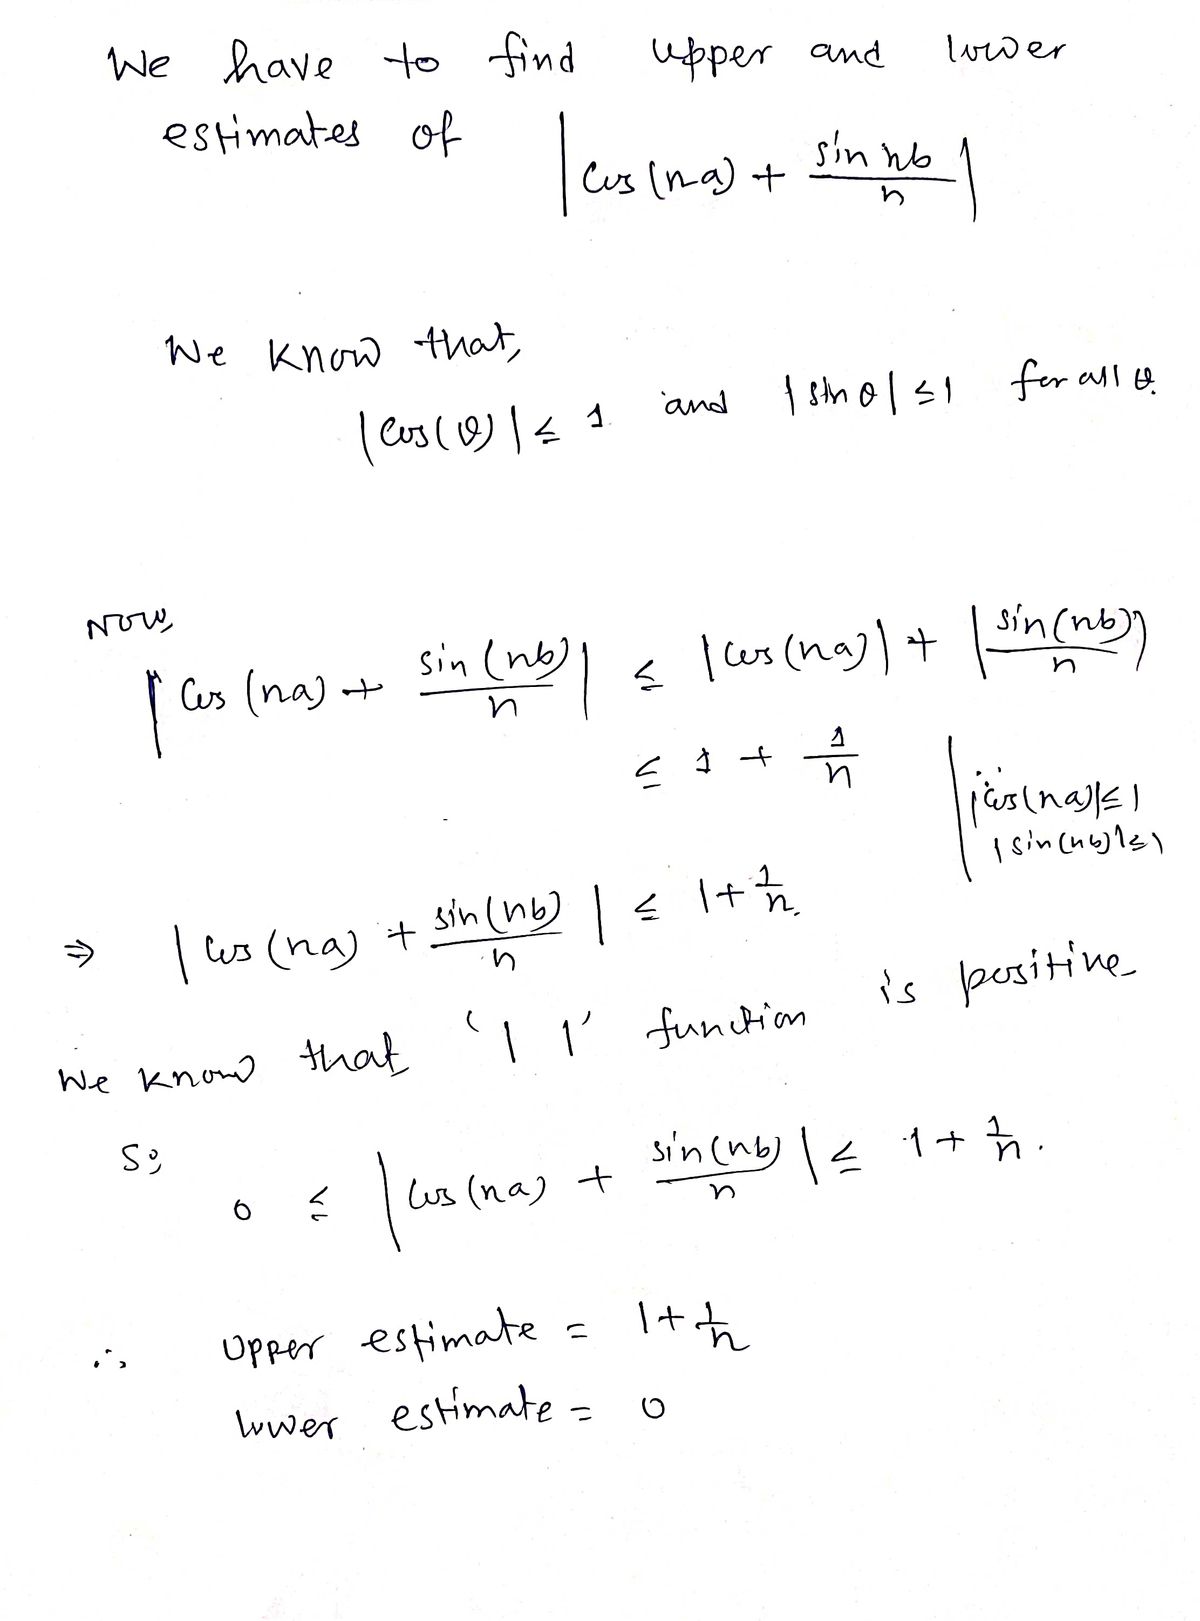 We have to find upper and lower
estimates of |cos(na) + sin nb / n|
We know that,
|cos(θ)| ≤ 1 and |sin θ| ≤ 1 for all θ.
Now,
|cos(na) + sin(nb)/n| ≤ |cos(na)| + |sin(nb)/n|
≤ 1 + 1/n | ∵ |cos(na)| ≤ 1
|sin(nb)| ≤ 1
⇒ |cos(na) + sin(nb)/n| ≤ 1 + 1/n.
We know that '| |' function is positive
So,
0 ≤ |cos(na) + sin(nb)/n| ≤ 1 + 1/n.
∴, Upper estimate = 1 + 1/n
lower estimate = 0